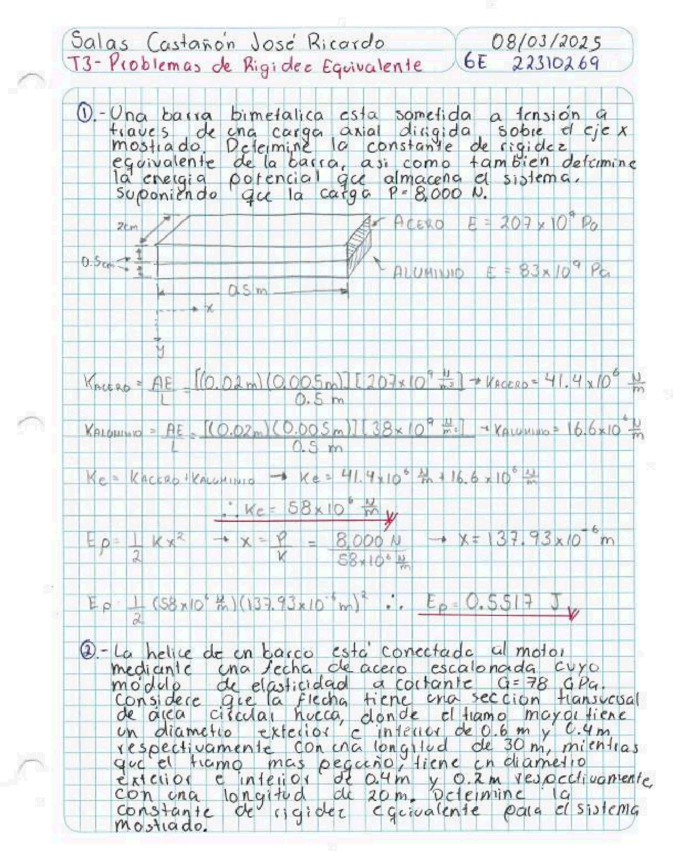 Salas Castañón José Ricardo
08/03/2025
T3-Problemas de Rigidez Equivalente
6E 22310269
①.-Una barra bimetalica esta sometida a tensión a
traves de una carga axial dirigida sobre el eje x
mostrado. Determine la constante de rigidez
equivalente de la barra, asi como tambien determine
la energia potencial que almacena el sistema.
Suponiendo que la carga P=8,000 N.
2cm
ACERO E = 207x10⁹ Pa
0.5cm
ALUMINIO E = 83x10⁹ Pa
0.5 m
x
y
KACERO = AE/L = [(0.02m)(0.005m)][207x10⁹ N/m²]/0.5 m → KACERO = 41.4x10⁶ N/m
KALUMINIO = AE/L = [(0.02m)(0.005m)][38x10⁹ N/m²]/0.5 m → KALUMINIO = 16.6x10⁶ N/m
Ke = KACERO + KALUMINIO → Ke = 41.4x10⁶ N/m + 16.6x10⁶ N/m
∴ Ke = 58x10⁶ N/m
Ep = 1/2 Kx² → x = P/K = 8,000 N/58x10⁶ N/m → x = 137.93x10⁻⁶ m
Ep = 1/2 (58x10⁶ N/m)(137.93x10⁻⁶ m)² ∴ Ep = 0.5517 J
②.-La helice de un barco está conectada al motor
mediante una fecha de acero escalonada cuyo
módulo de elasticidad a cortante G=78 GPa.
Considere que la flecha tiene una sección transversal
de área circular hueca, donde el tramo mayor tiene
un diametro exterior e interior de 0.6 m y 0.4m
respectivamente con una longitud de 30 m, mientras
que el tramo mas pequeño, tiene un diametro
exterior e interior de 0.4m y 0.2m respectivamente,
con una longitud de 20m. Determine la
constante de rigidez equivalente para el sistema
mostrado.